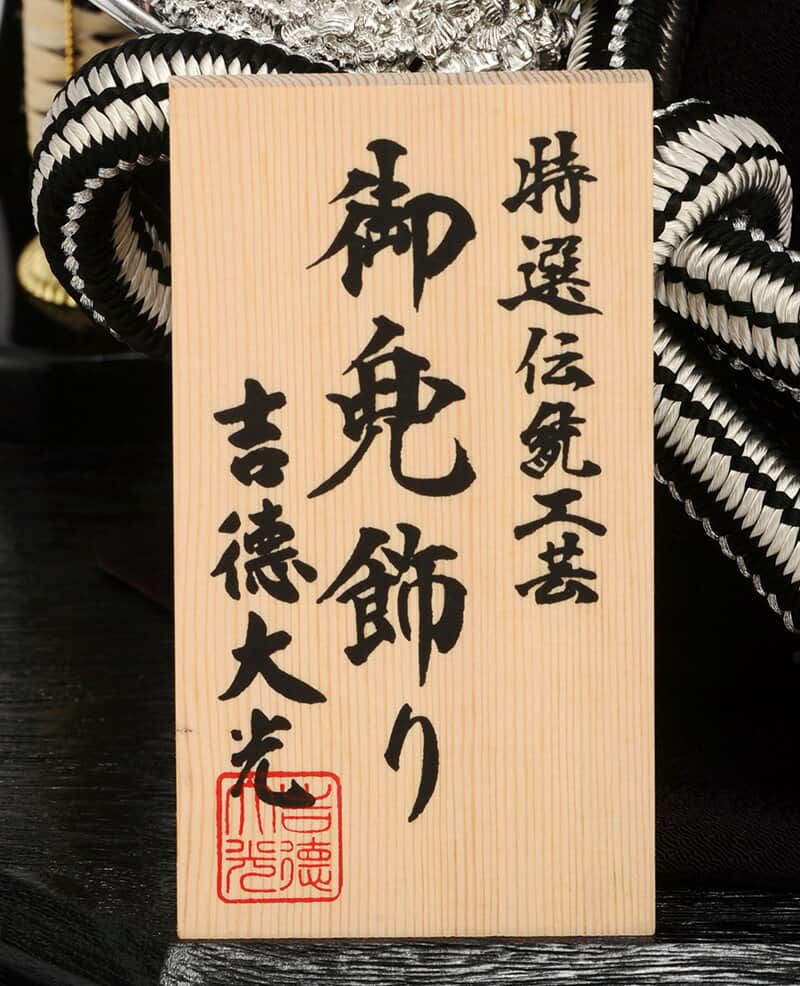 特選伝統工芸
御免飾り
吉德大光
吉德
大光